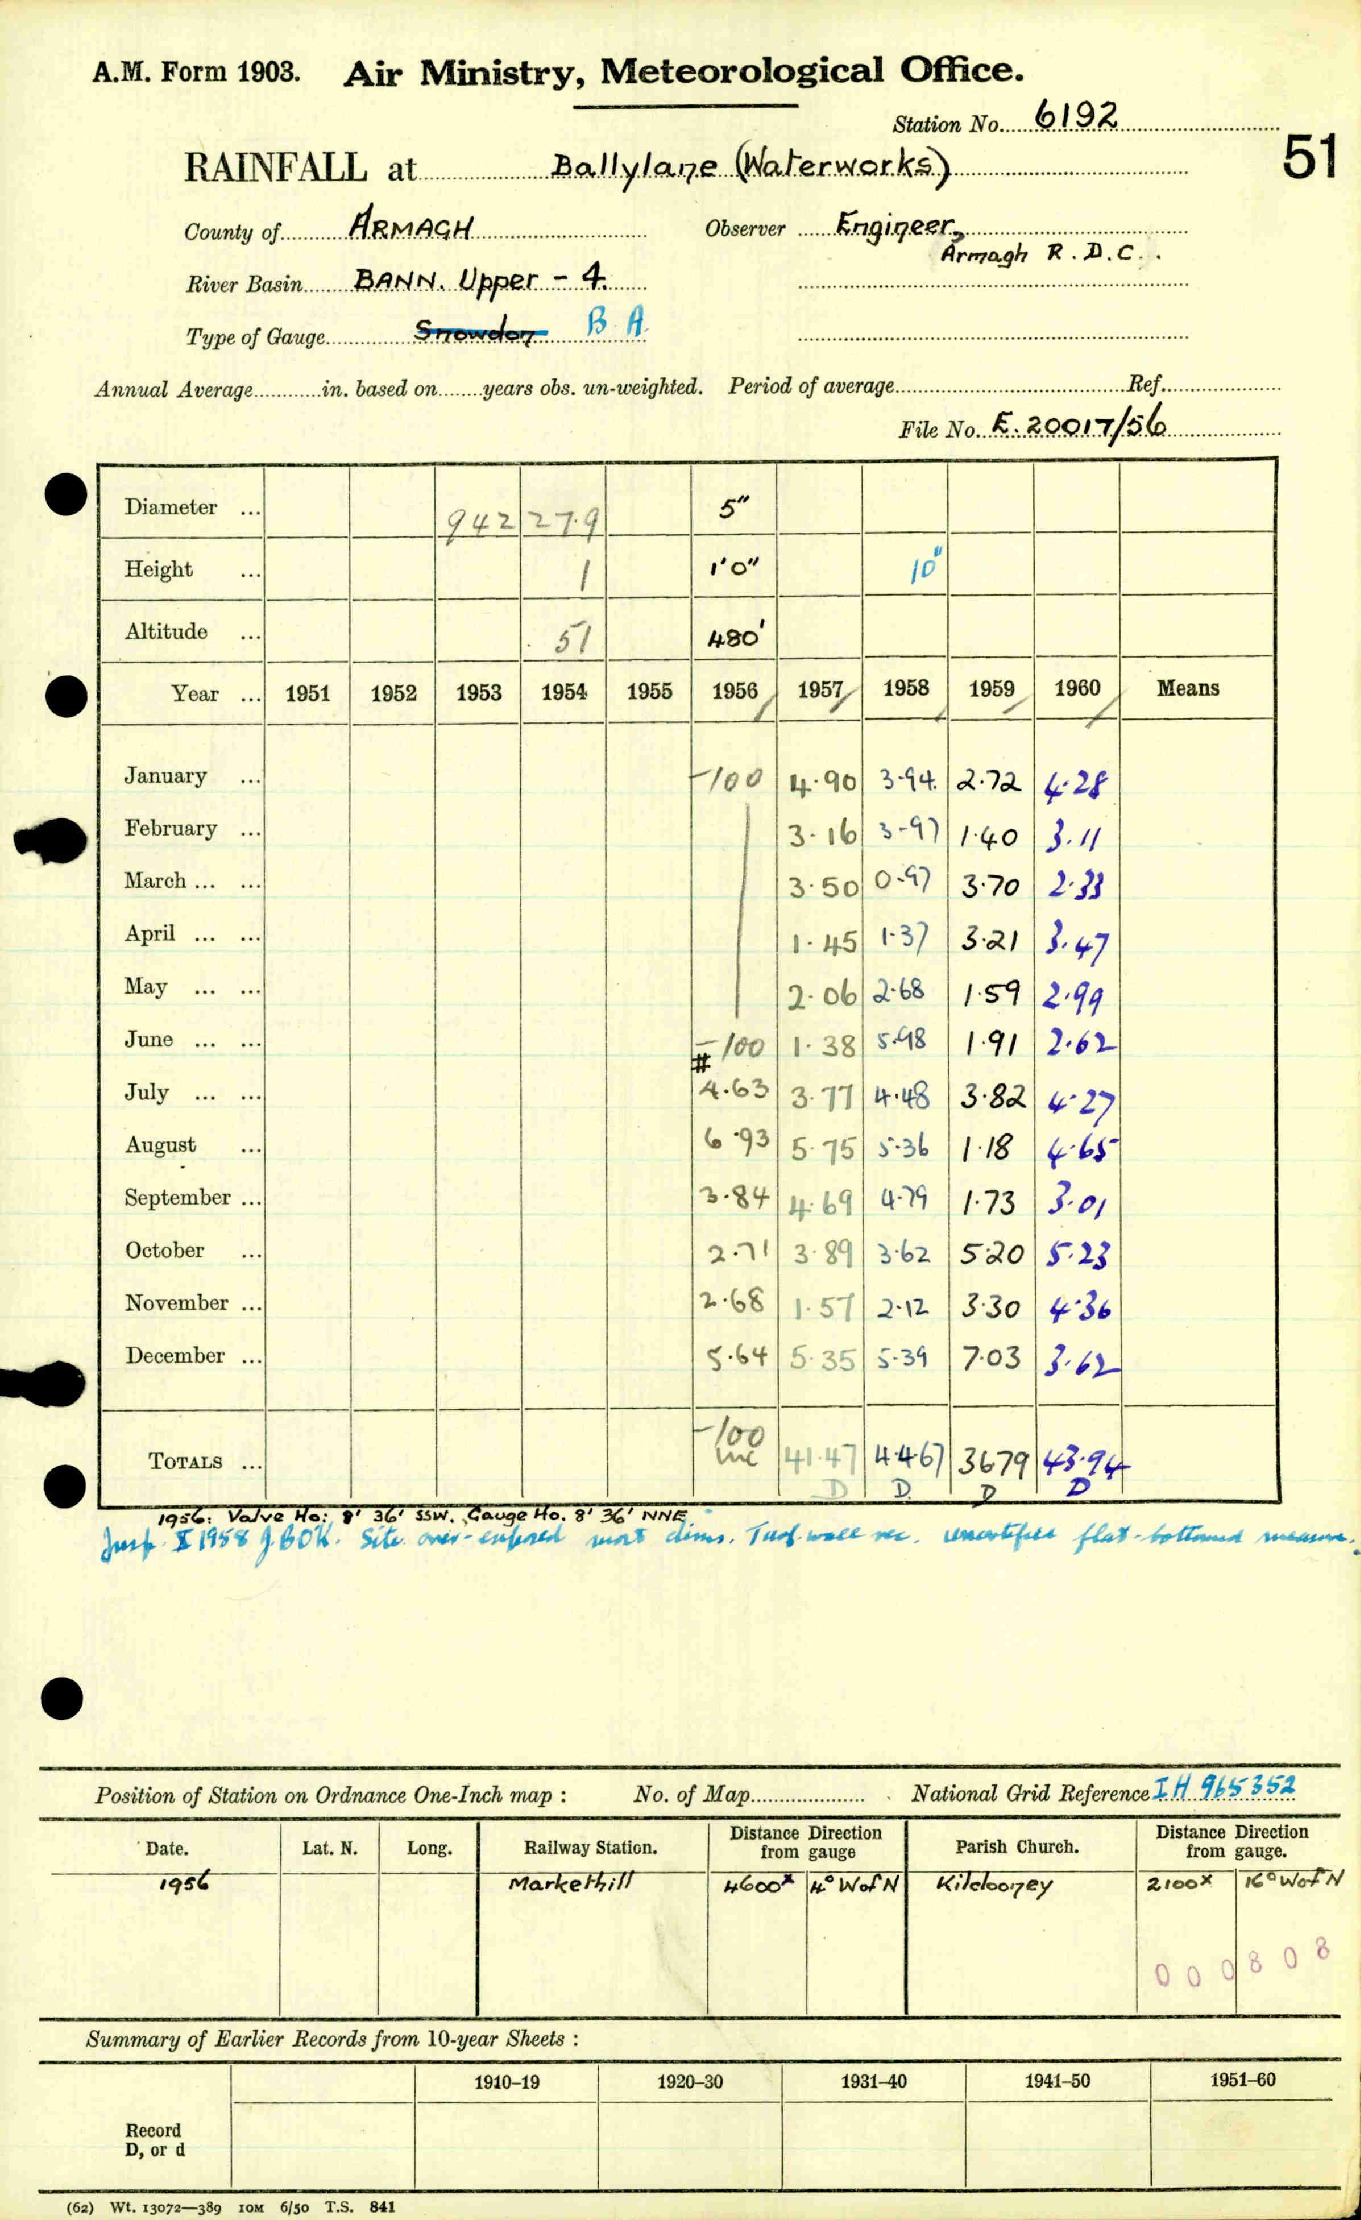 A.M. Form 1903. Air Ministry, Meteorological Office.
Station No. 6192
51
RAINFALL at Ballylane (Waterworks)
County of ARMAGH Observer Engineer,
Armagh R.D.C.
River Basin BANN. Upper - 4.
Type of Gauge Snowdon B A.
Annual Average in. based on years obs. un-weighted. Period of average Ref.
File No. E.20017/56
Diameter ... 942 27.9 5"
Height ... 1 1'0" 10"
Altitude ... 51 480'
Year ... 1951 1952 1953 1954 1955 1956 1957 1958 1959 1960 Means
January ... -100 4.90 3.94 2.72 4.28
February ... 3.16 3.97 1.40 3.11
March ... ... 3.50 0.97 3.70 2.33
April ... ... 1.45 1.37 3.21 3.47
May ... ... 2.06 2.68 1.59 2.99
June ... ... -100 1.38 5.98 1.91 2.62
#
July ... ... 4.63 3.77 4.48 3.82 4.27
August ... 6.93 5.75 5.36 1.18 4.65
September ... 3.84 4.69 4.79 1.73 3.01
October ... 2.71 3.89 3.62 5.20 5.23
November ... 2.68 1.57 2.12 3.30 4.36
December ... 5.64 5.35 5.39 7.03 3.62
-100
TOTALS ... inc 41.47 44.67 36.79 43.94
D D D D
1956: Valve Ho: 8' 36' SSW. Gauge Ho. 8' 36' NNE
Insp. X 1958 J.BOK. Site over-exposed most dirns. Turf wall rec. uncertified flat-bottomed measure.
Position of Station on Ordnance One-Inch map : No. of Map National Grid Reference IH 965352
Date. Lat. N. Long. Railway Station. Distance Direction from gauge Parish Church. Distance Direction from gauge.
1956 Markethill 4600x 4° W of N Kilclooney 2100x 16° W of N
000808
Summary of Earlier Records from 10-year Sheets :
1910–19 1920–30 1931–40 1941–50 1951–60
Record
D, or d
(62) Wt. 13072—389 10M 6/50 T.S. 841